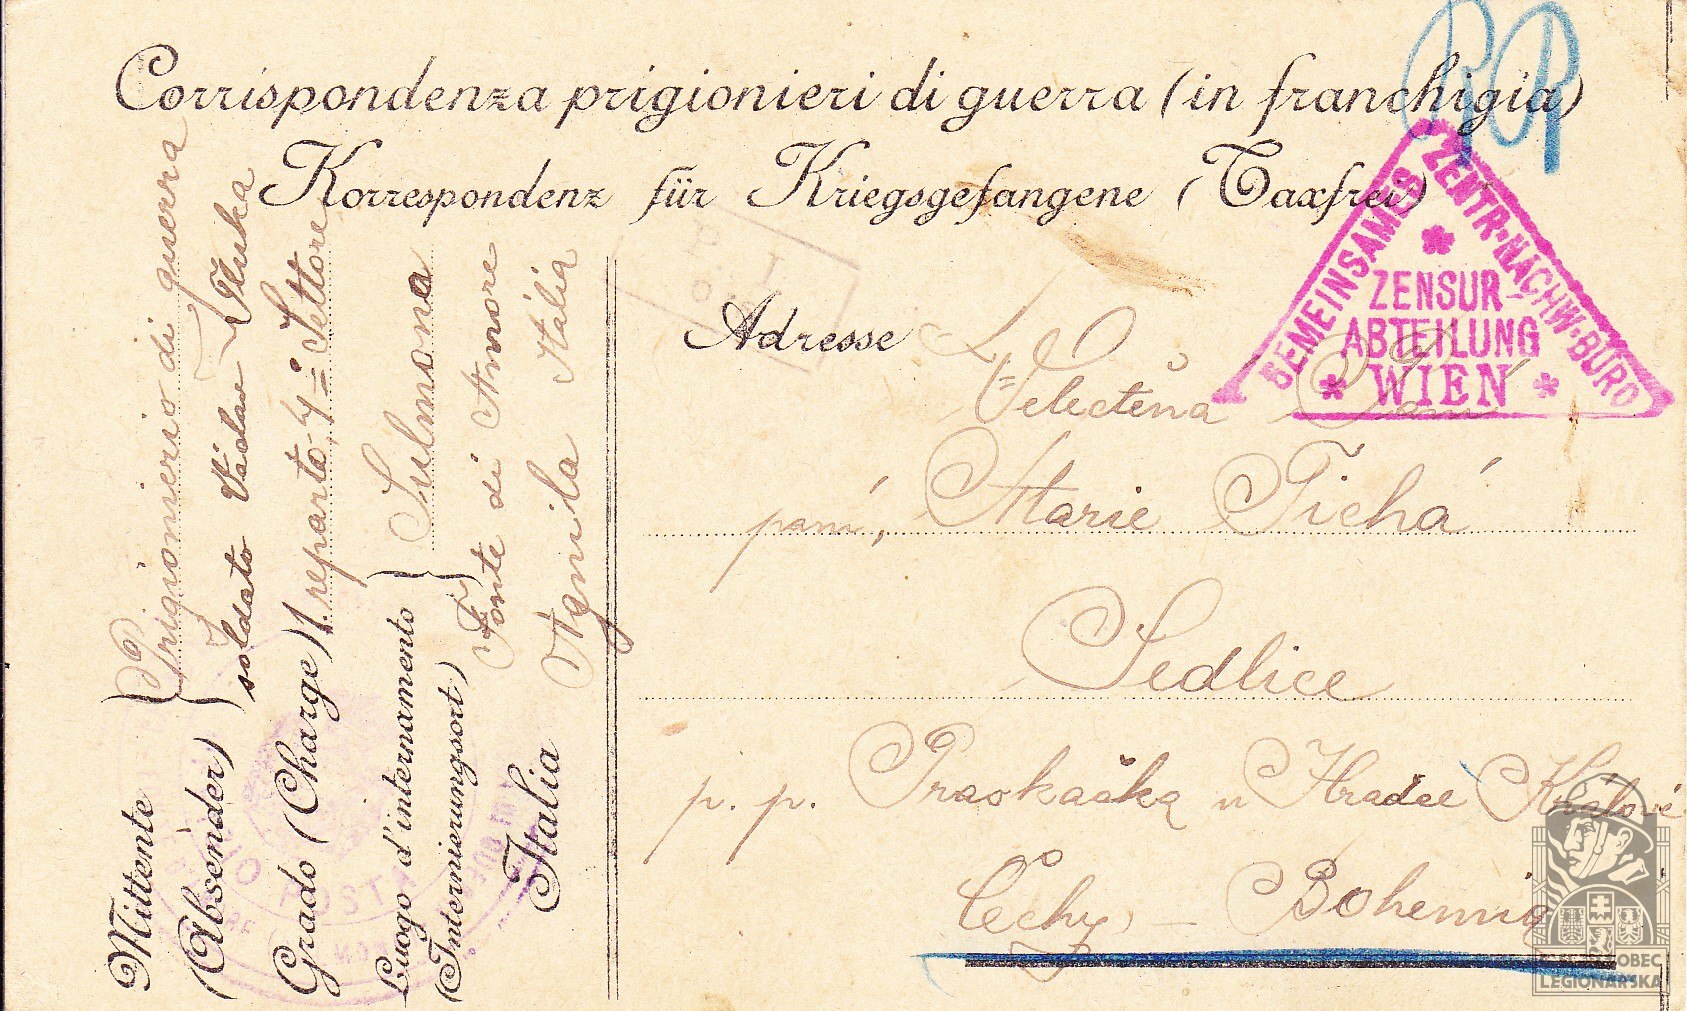 Corrispondenza prigionieri di guerra (in franchigia)
Korrespondenz für Kriegsgefangene (Taxfrei)
GEMEINSAMES ZENTR-NACHW-BÜRO
ZENSUR-
ABTEILUNG
WIEN
Mittente
(Absender)
Prigioniero di guerra
soldato
Grado (Charge) 1. reparto 4= Settore
Luogo d'internamento
(Internierungsort)
Sulmona
Fonte di Amore
Aquila Italia
Italia
POSTA
Adresse
Velectěna Paní
paní, Marie Tichá
Sedlice
p. p. Praskačka u Hradce Králové
Čechy – Bohemia
OBEC
LEGIONÁŘSKÁ